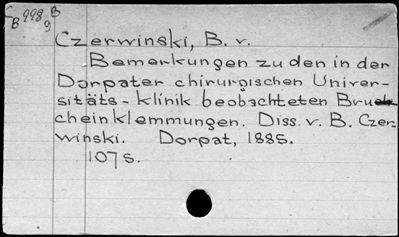 B 998 B
9
Czerwinski, B. v.
Bemerkungen zu den in der
Dorpater chirurgischen Univer-
sitäts-klinik beobachteten Bru
cheinklemmungen. Diss. v. B. Czer-
winski. Dorpat, 1885.
107 s.